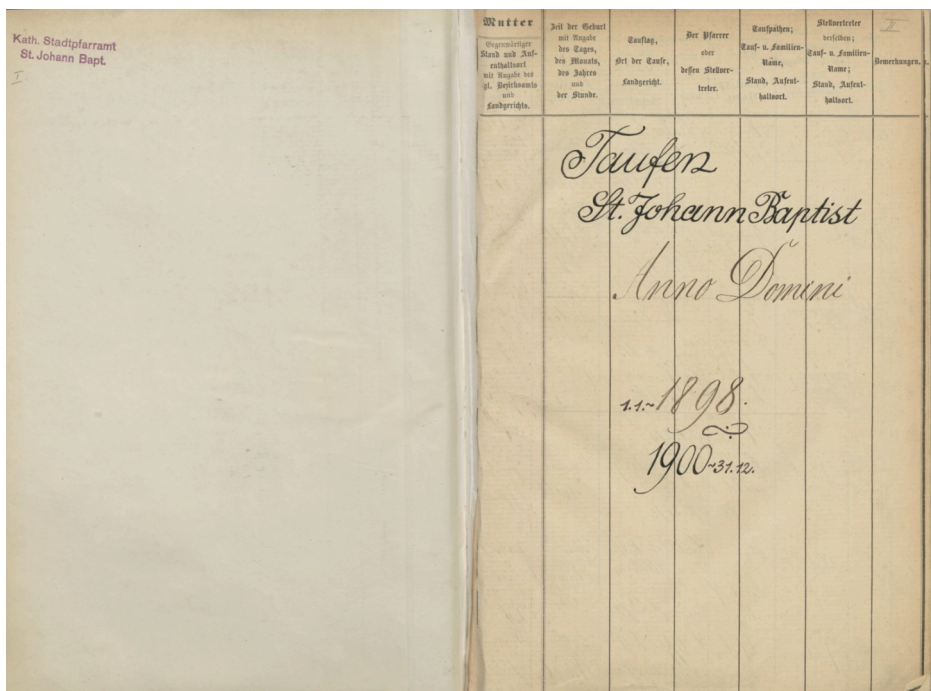 Kath. Stadtpfarramt
St. Johann Bapt.
I
Mutter
Gegenwärtiger
Stand und Auf-
enthaltsort
mit Angabe des
gl. Bezirksamts
und
Landgerichts.
Zeit der Geburt
mit Angabe
des Tages,
des Monats,
des Jahres
und
der Stunde.
Tauftag,
Ort der Taufe,
Landgericht.
Der Pfarrer
oder
dessen Stellver-
treter.
Taufpathen;
Tauf- u. Familien-
Name,
Stand, Aufent-
haltsort.
Stellvertreter
derselben;
Tauf- u. Familien-
Name;
Stand, Aufent-
haltsort.
II
Bemerkungen.
Taufen
St. Johann Baptist
Anno Domini
1.1.~1898.
1900~31.12.